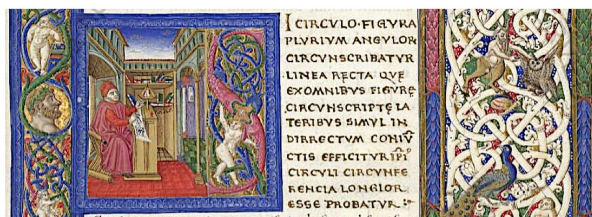 I CIRCVLO·FIGVRA
PLVRIVM ANGVLOR
CIRCVNSCRIBATVR
LINEA RECTA QVE
EXOMNIBVS FIGVRĘ
CIRCVNSCRIPTĘ LA
TERIBVS SIMVL IN
DIRRECTVM CONIV̄
CTIS EFFICITVR IP̄I
CIRCVLI CIRCVNFE
RENCIA LONGIOR
ESSE PROBATVR